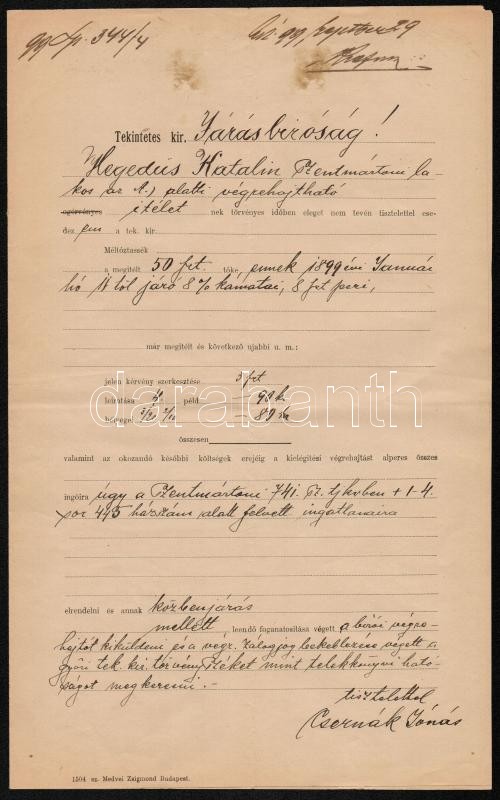 99 Sp. 344/4
Tekintetes kir. Járásbiróság!
Hegedüs Katalin Szentmártoni la-
kos az 1.) alatti végrehajtható
ügérvényes itélet nek törvényes időben eleget nem tevén tisztelettel ese-
dez em a tek. kir.
Méltóztassék
a megitélt 50 frt. tőke, ennek 1899 évi Január
hó 1től járó 8% kamatai, 8 frt peri,
már megitélt és következő ujabbi u. m.:
jelen kérvény szerkesztése 3 frt
leiratása 4 péld. 90 k
bélyegei 89 k
összesen
valamint az okozandó későbbi költségek erejéig a kielégitési végrehajtást alperes összes
ingóira úgy a Szentmártoni 741. sz. tjkvben + 1-4.
sor 445 házszám alatt felvett ingatlanaira
elrendelni és annak közbenjárás
mellett, leendő foganatositása végett a birói végre-
hajtót kiküldeni és a végr. zálogjog bekeblezése végett a
győri tek. kir. törvényszéket mint telekkönyvi ható-
ságot megkeresni. -
tisztelettel
Csernák Jónás
1504 sz. Medvei Zsigmond Budapest.
darabanth